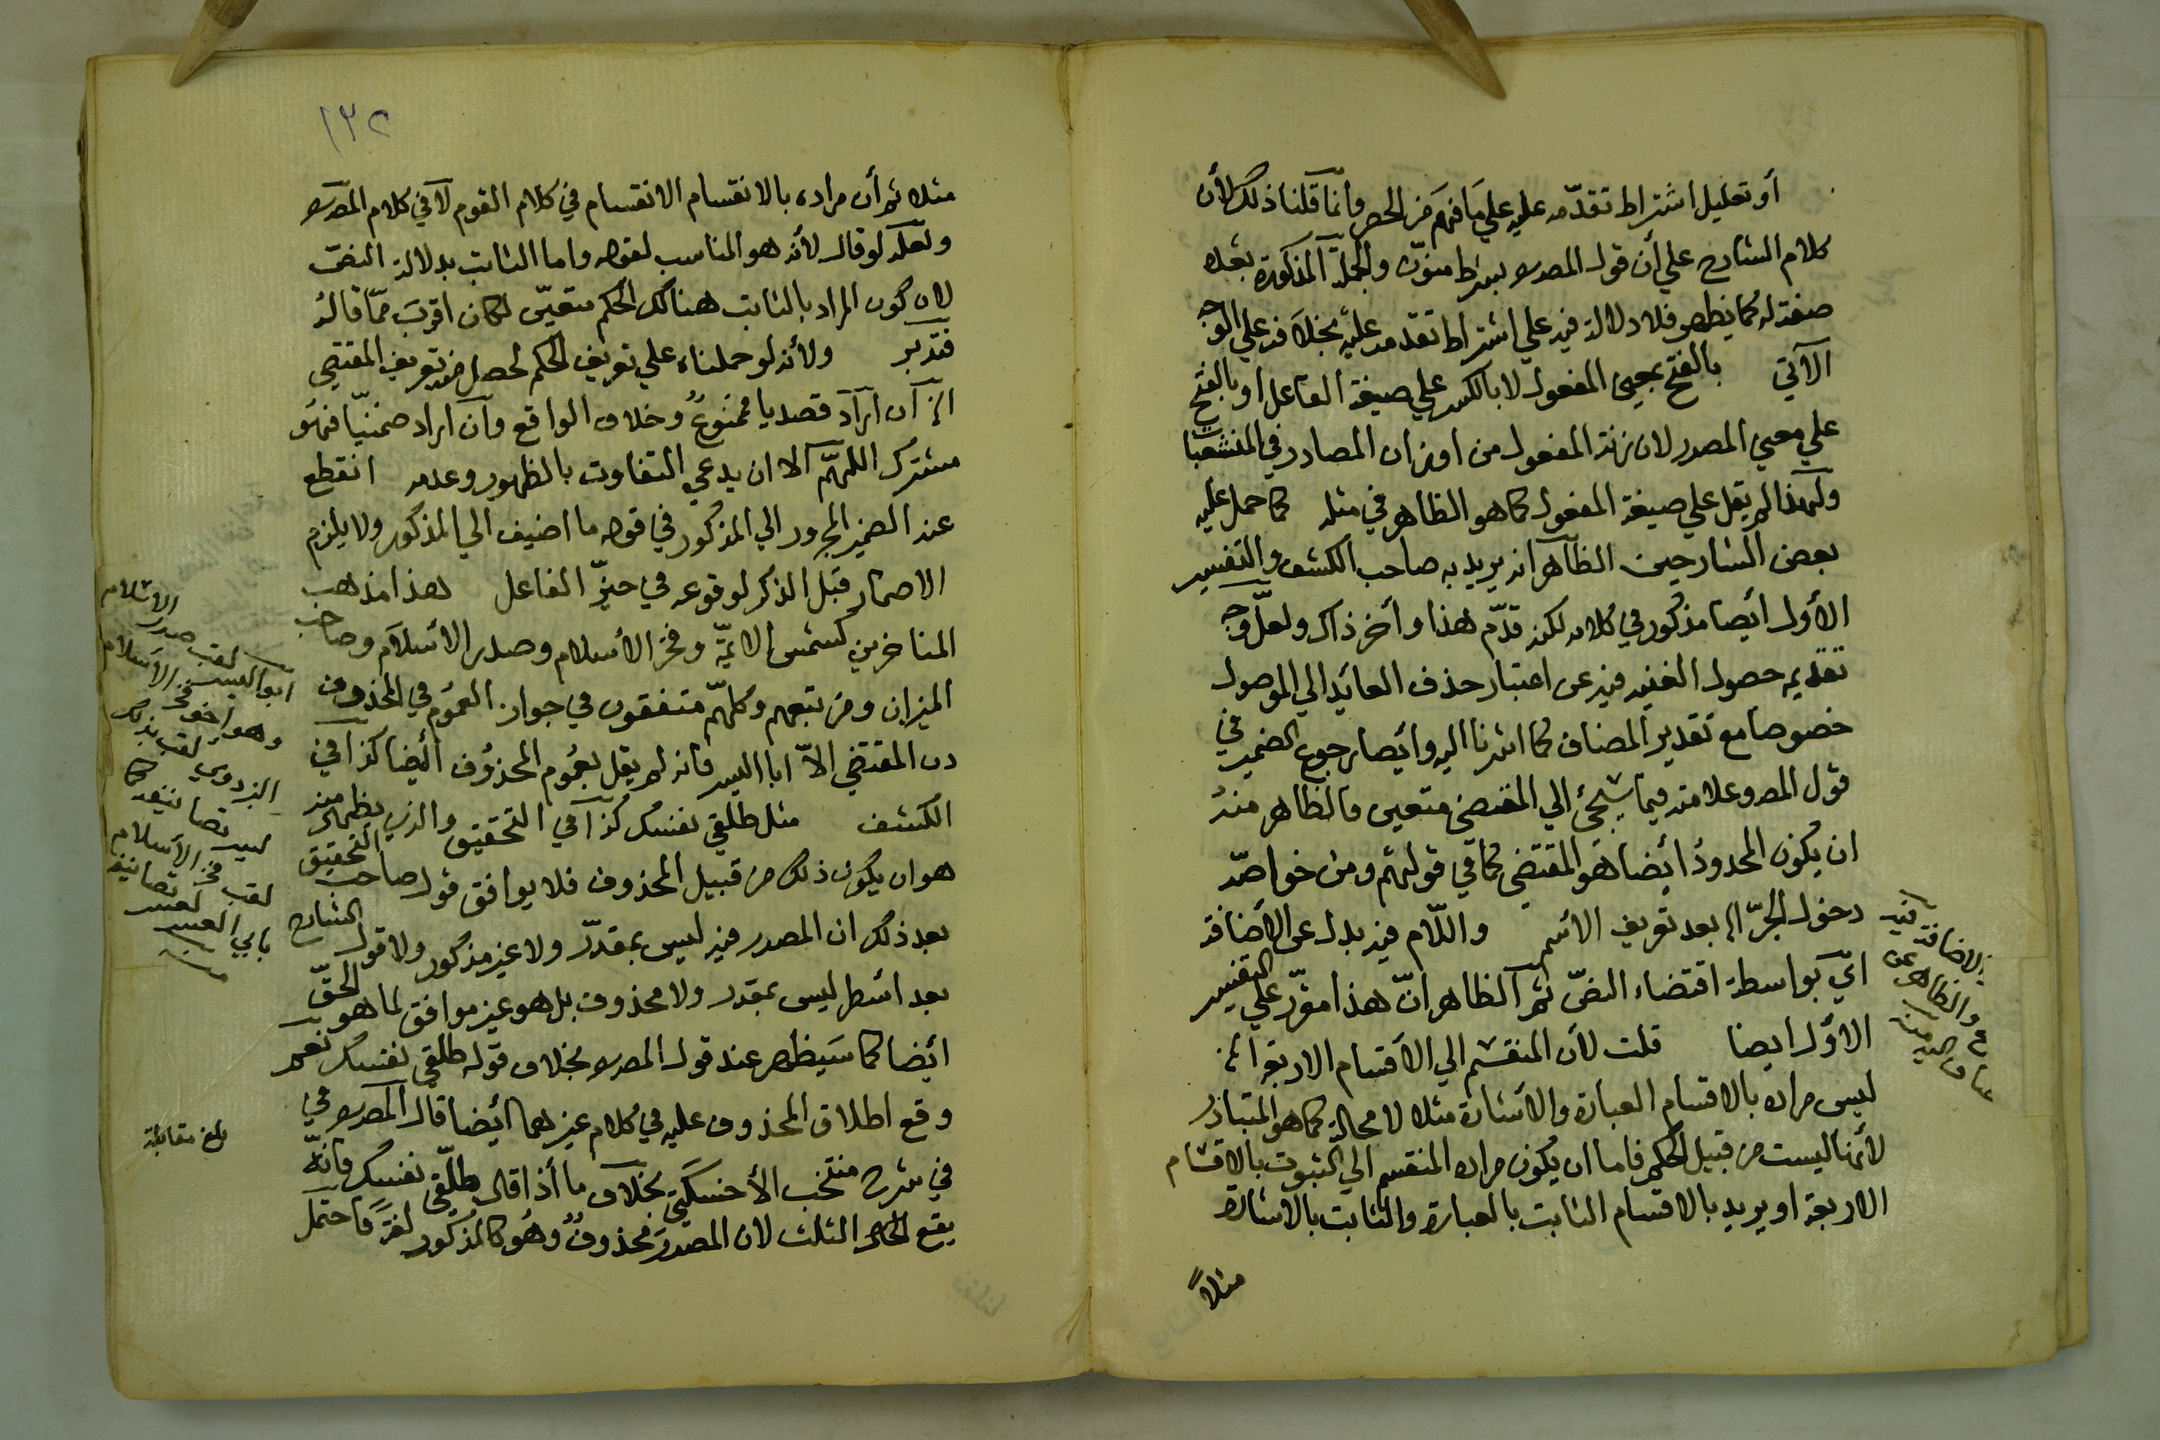 أو تعليل اشتراط تقدّمه عليه علي ما فهم من الحصر وانما قلنا ذلك لأن
كلام الشارح علي أن قول المصـ بشرط منوّن والجملة المذكورة بعده
صفة له كما يظهر فلا دلالة فيه علي اشتراط تقدمه عليه بخلافه علي الوجه
الآتي بالفتح بمعني المفعول لا بالكسر علي صيغة الفاعل او بالفتح
علي معني المصدر لان زنة المفعول من اوزان المصادر في المنشعبات
ولهذا لم يقل علي صيغة المفعول كما هو الظاهر في مثله كما حمل عليه
بعض الشارحين الظاهر انه يريد به صاحب الكشف والتفسير
الأول أيضا مذكور في كلامه لكنه قدّم هذا وأخر ذاك ولعلّ وجه
تقديمه حصول الغنية فيه عن اعتبار حذف العائد الي الموصول
خصوصا مع تقدير المضاف كما اشرنا اليه وايضا رجوع الضمير في
قول المصـ وعلامته فيما سيجئ الي المقتضى متعين فالظاهر منه
ان يكون المحدود أيضا هو المقتضي كما في قولهم ومن خواصّه
دخول الجرّ الخ بعد تعريف الاسم واللّام فيه بدل عن الاضافة
ايّ بواسطة اقتضاء النصّ ثم الظاهر انّ هذا مفرّع علي التفسير
الاوّل ايضا قلت لأن المنقسم الي الأقسام الاربعة الخ
ليس مراده بالاقسام العبارة والاشارة مثلا لا محالة كما هو المتبادر
لأنها ليست من قبيل الحكم فاما ان يكون مراده المنقسم الي الثبوت بالاقسام
الاربعة او يريد بالاقسام الثابت بالعبارة والثابت بالاشارة
مثلاً
١٣٢
مثلا ثم أن مراده بالانقسام الانقسام في كلام القوم لا في كلام المصـ
ولعله لو قال لأنه هو المناسب لقوله واما الثابت بدلالة النصّ
لان كون المراد بالثابت هنالك الحكم متعيّن لكان اقرب ممّا قاله
فتدبر ولأنه لو حملناه علي تعريف الحكم لحصل منه تعريف المقتضي
الخ ان اراد قصديا فممنوع وخلاف الواقع وان اراد ضمنيّا فهو
مشترك اللهمّ الا ان يدعي التفاوت بالظهور وعدمه انقطع
عند الضمير المجرور الي المذكور في قوله ما اضيف الي المذكور ولا يلزم
الاضمار قبل الذكر لوقوعه في حيزّ الفاعل هذا مذهب
المتاخرين كشمس الائمّة وفخر الأسلام وصدر الاسلام وصاحب
الميزان ومن تبعهم وكلهم متفقون في جواز العموم في المحذوف
دن المقتضي الاّ ابا اليسر فانه لم يقل بعموم المحذوف أيضا كذا في
الكشف مثل طلقي نفسك كذا في التحقيق والذي يظهر منه
هو ان يكون ذلك من قبيل المحذوف فلا يوافق قول صاحب التحقيق
بعد ذلك ان المصدر فيه ليس بمقدّر ولا غير مذكور ولا قول الشارح
بعد اسطر ليس بمقدر ولا محذوف بل هو غير موافق لما هو الحقّ
ايضا كما سيظهر عند قول المصـ بخلاف قوله طلقي نفسك نعم
وقع اطلاق المحذوف عليه في كلام غيرهما أيضا قال المصـ في
في شرح منتخب الأخسكتي بخلاف ما أذا قال طلّقي نفسك فانّه
يقع الثلث لان المصدر محذوفٌ وهو كالمذكور لغةً فاحتمل
ابو اليسر لقب صدر الاسلام
وهو اخو فخر الاسلام
البزدوي لقب بذلك
ليسر تصانيفه كما
لقب فخر الأسلام
بابي العسر لعسر تصانيفه
بلغ مقابلة